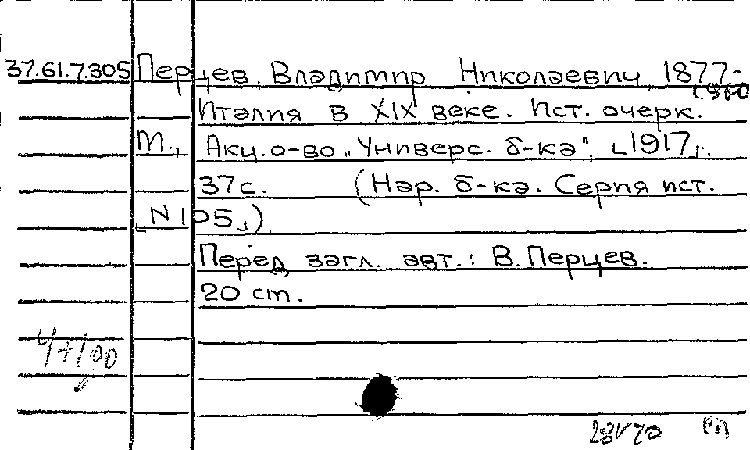 37.61.7.305 Перцев, Владимир Николаевич, 1877-
1960
Италия в XIX веке. Ист. очерк.
М., Акц. о-во „Универс. б-ка", [1917].
37 с. (Нар. б-ка. Серия ист.
[N 105])
Перед загл. авт.: В. Перцев.
20 cm.